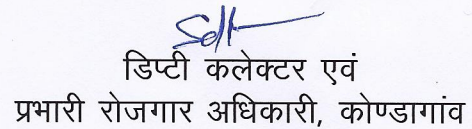 Sd/-
डिप्टी कलेक्टर एवं
प्रभारी रोजगार अधिकारी, कोण्डागांव